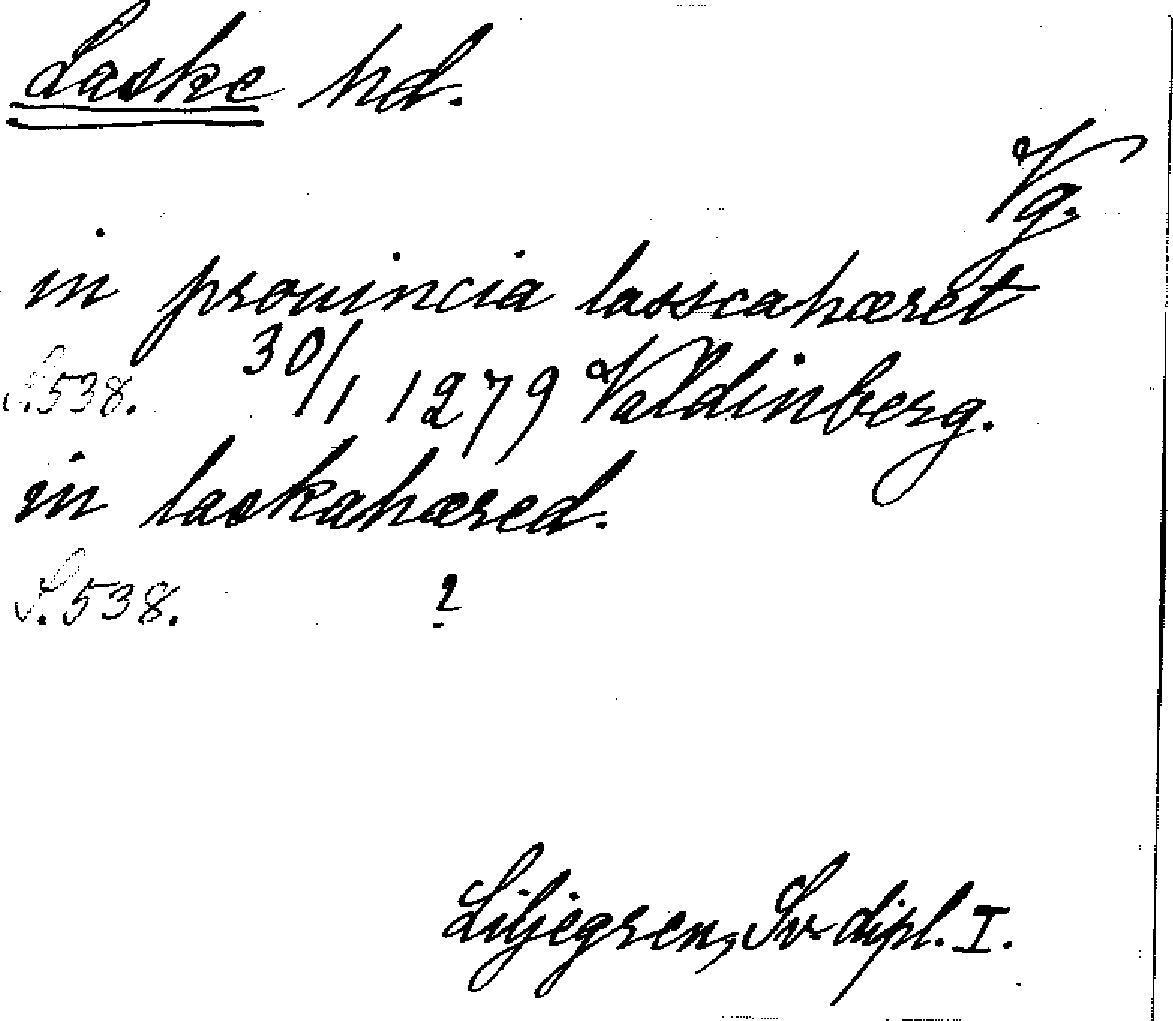 Laske hd.
Vg.
in prouincia lasscahæret
S. 538. 30/1 1279 Valdinberg.
in laskahæred.
S. 538. ?
Liljegren, Sv dipl. I.